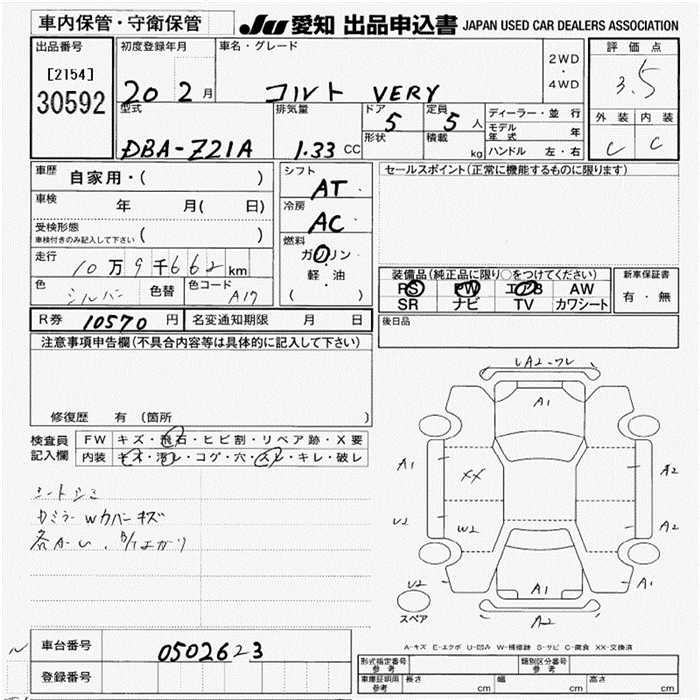 車内保管・守衛保管
JU 愛知 出品申込書 JAPAN USED CAR DEALERS ASSOCIATION
出品番号
[2154]
30592
初度登録年月
20 2月
車名・グレード
コルト VERY
2WD
・
4WD
評価点
3.5
外装 内装
C C
型式
DBA-Z21A
排気量
1.33 CC
ドア
5
形状
定員
5 人
積載
kg
ディーラー・並行
モデル年式 年
ハンドル 左・右
車歴 自家用・( )
車検 年 月( 日)
受検形態
車検付きのみ記入して下さい ( )
走行 10万9千662km
色 シルバー 色替 色コード A17
シフト
AT
冷房
AC
燃料
ガソリン
軽・油
( )
セールスポイント(正常に機能するものに限ります)
装備品(純正品に限り○をつけてください)
PS PW エアB AW
SR ナビ TV カワシート
新車保証書
有・無
R券 10570 円 名変通知期限 月 日
後日品
注意事項申告欄(不具合内容等は具体的に記入して下さい)
修復歴 有(箇所 )
検査員記入欄
FW キズ・飛石・ヒビ割・リペア跡・X要
内装 キズ・汚レ・コゲ・穴・スレ・キレ・破レ
シートシミ
Wカバーキズ
各A-U
UA2-ワレ
A1
A1
A2
XX
U2
W2
A2
U2
A1
A1
A2
スペア
A-キズ E-エクボ U-凹み W-補修跡 S-サビ C-腐食 XX-交換済
車台番号 0502623
登録番号
形式指定番号 参考 類別区分番号 参考
車庫証明用 参考 長さ cm 幅 cm 高さ cm